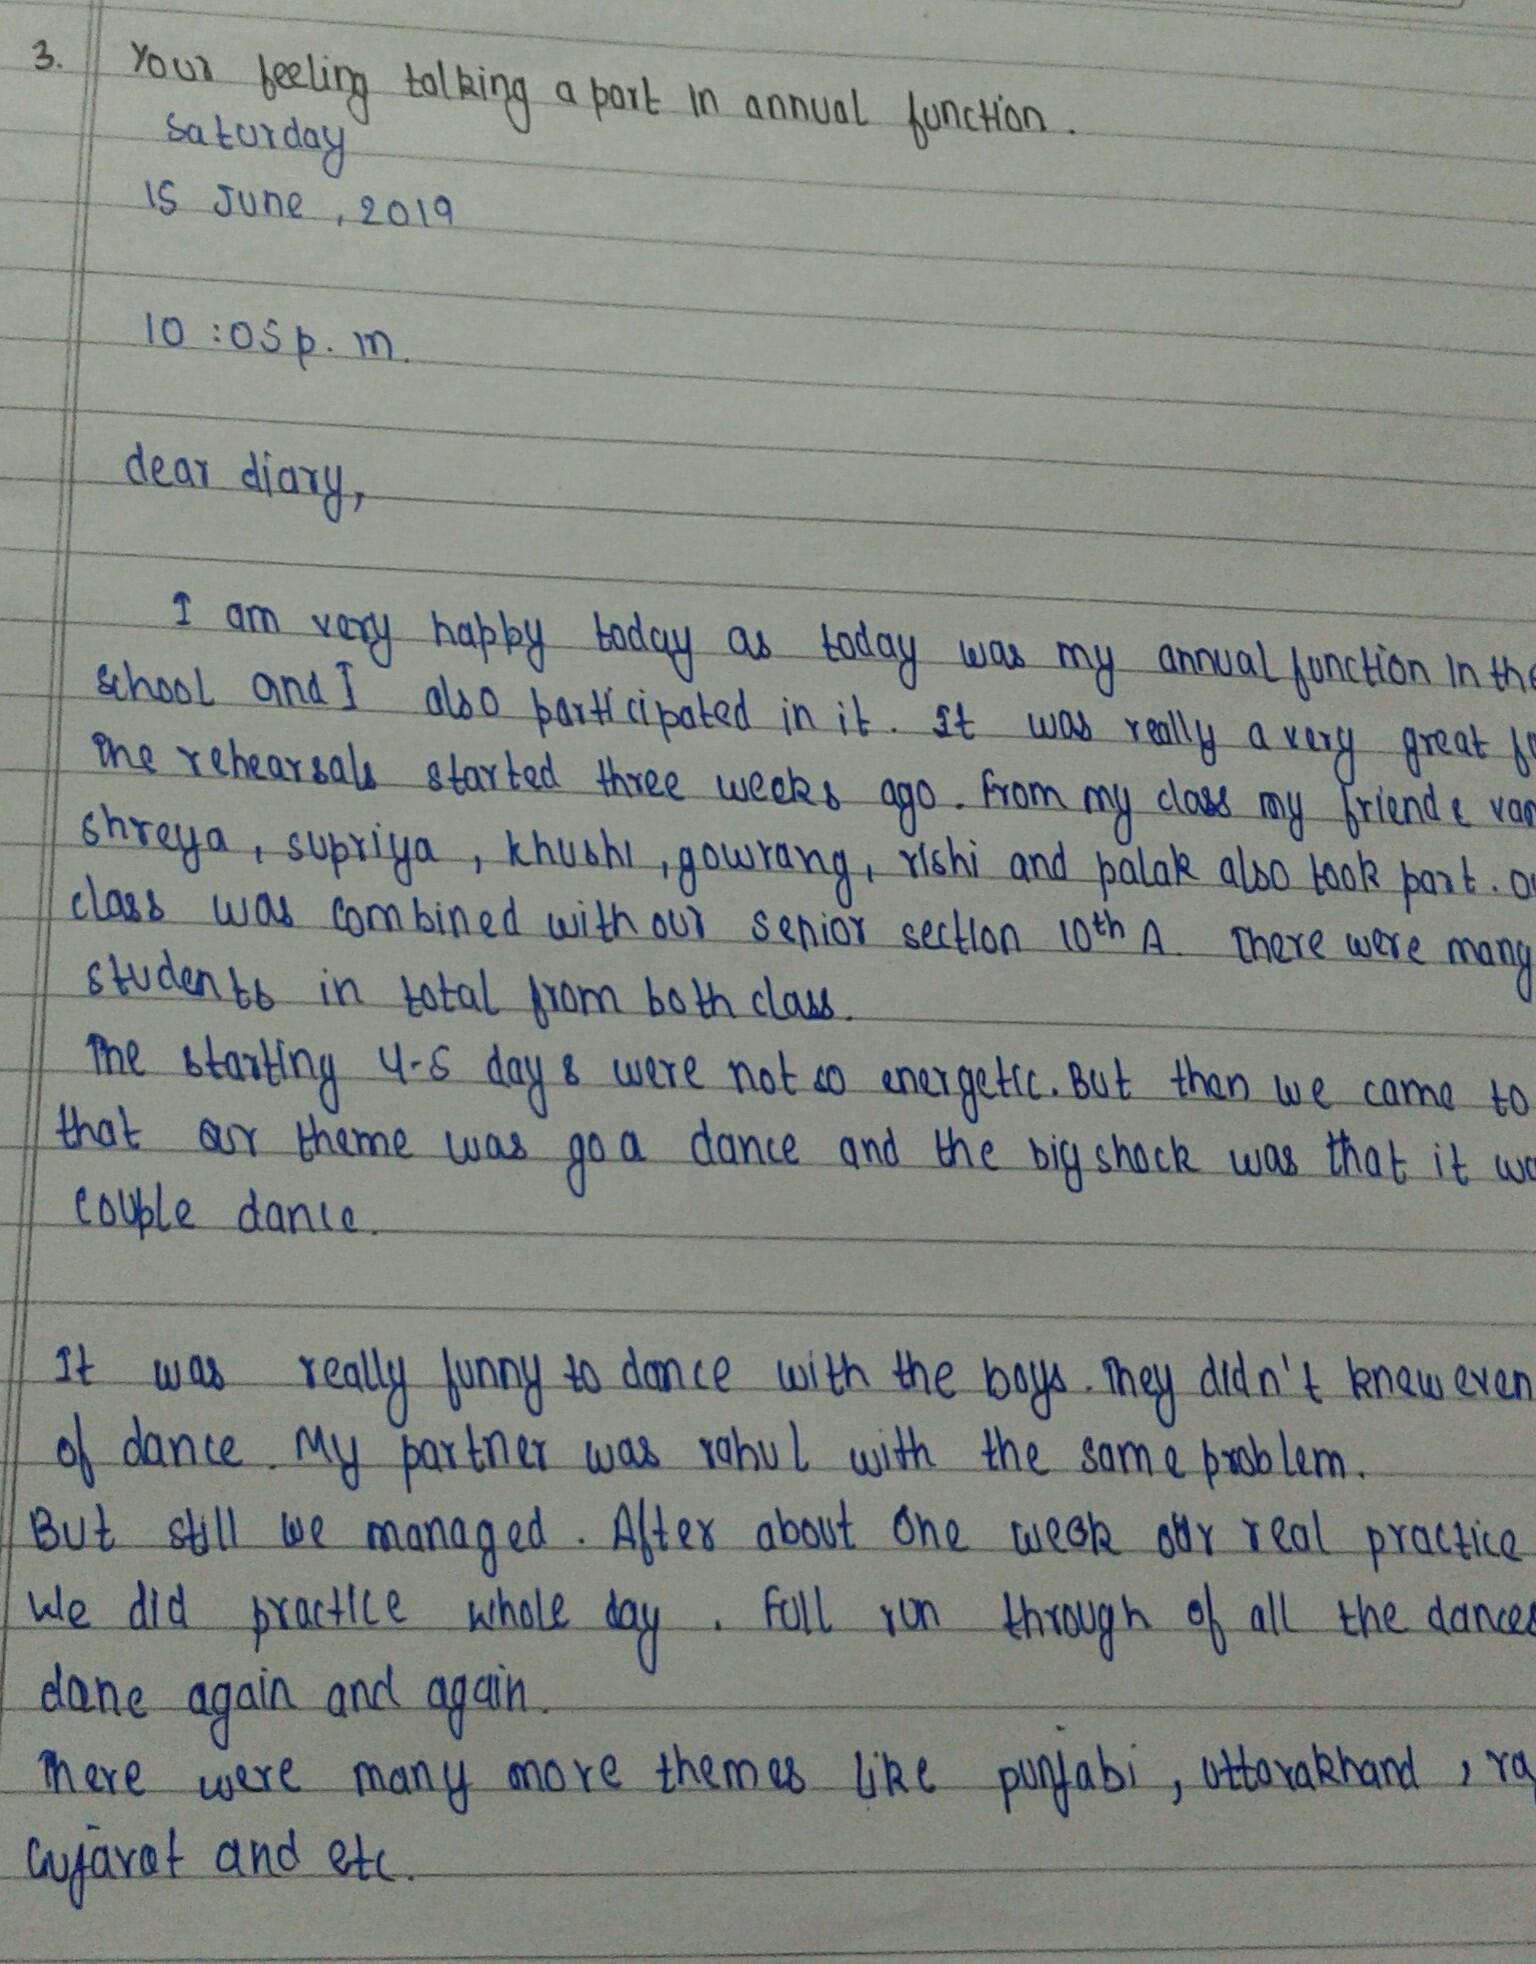 3. Your feeling talking a part in annual function.
Saturday
15 June, 2019
10:05 p.m.
dear diary,
I am very happy today as today was my annual function in the
school and I also participated in it. It was really a very great
The rehearsals started three weeks ago. From my class my friends
shreya, supriya, khushi, gowrang, rishi and palak also took part.
class was combined with our senior section 10th A. There were many
students in total from both class.
The starting 4-5 days were not so energetic. But then we came to
that our theme was goa dance and the big shock was that it
couple dance.
It was really funny to dance with the boys. They didn't knew even
of dance. My partner was rahul with the same problem.
But still we managed. After about one week our real practice
We did practice whole day. Full run through of all the dances
done again and again.
There were many more themes like punjabi, uttarakhand,
Gujarat and etc.